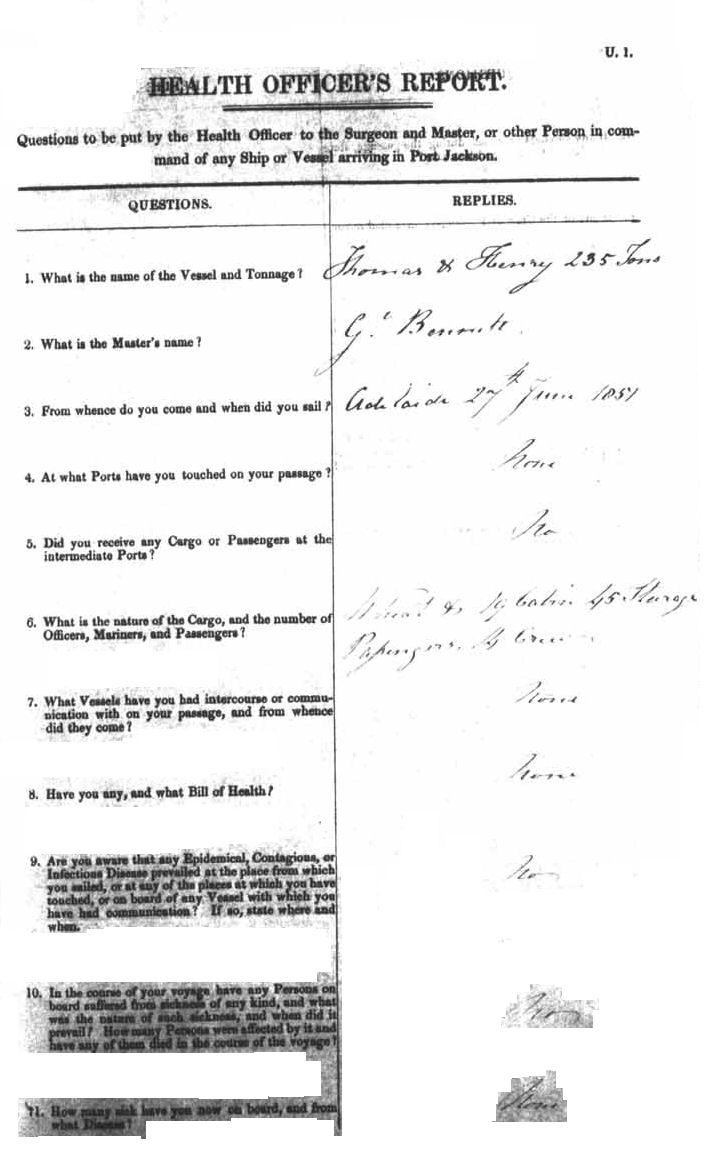 U. 1.
HEALTH OFFICER'S REPORT.
Questions to be put by the Health Officer to the Surgeon and Master, or other Person in com-
mand of any Ship or Vessel arriving in Port Jackson.
QUESTIONS. REPLIES.
1. What is the name of the Vessel and Tonnage? Thomas & Henry 235 Tons
2. What is the Master's name?
3. From whence do you come and when did you sail? Adelaide 27th June 1851
4. At what Ports have you touched on your passage? None
5. Did you receive any Cargo or Passengers at the No
intermediate Ports?
6. What is the nature of the Cargo, and the number of & 19 Cabin 45 Sturage
Officers, Mariners, and Passengers? Passengers. 14 Crew
7. What Vessels have you had intercourse or commu- None
nication with on your passage, and from whence
did they come?
8. Have you any, and what Bill of Health? None
9. Are you aware that any Epidemical, Contagious, or No
Infectious Disease prevailed at the place from which
you sailed, or at any of the places at which you have
touched, or on board of any Vessel with which you
have had communication? If so, state where and
when.
10. In the course of your voyage have any Persons on No
board suffered from sickness of any kind, and what
was the nature of such sickness, and when did it
prevail? How many Persons were affected by it and
have any of them died in the course of the voyage?
11. How many sick have you now on board, and from None
what Disease?